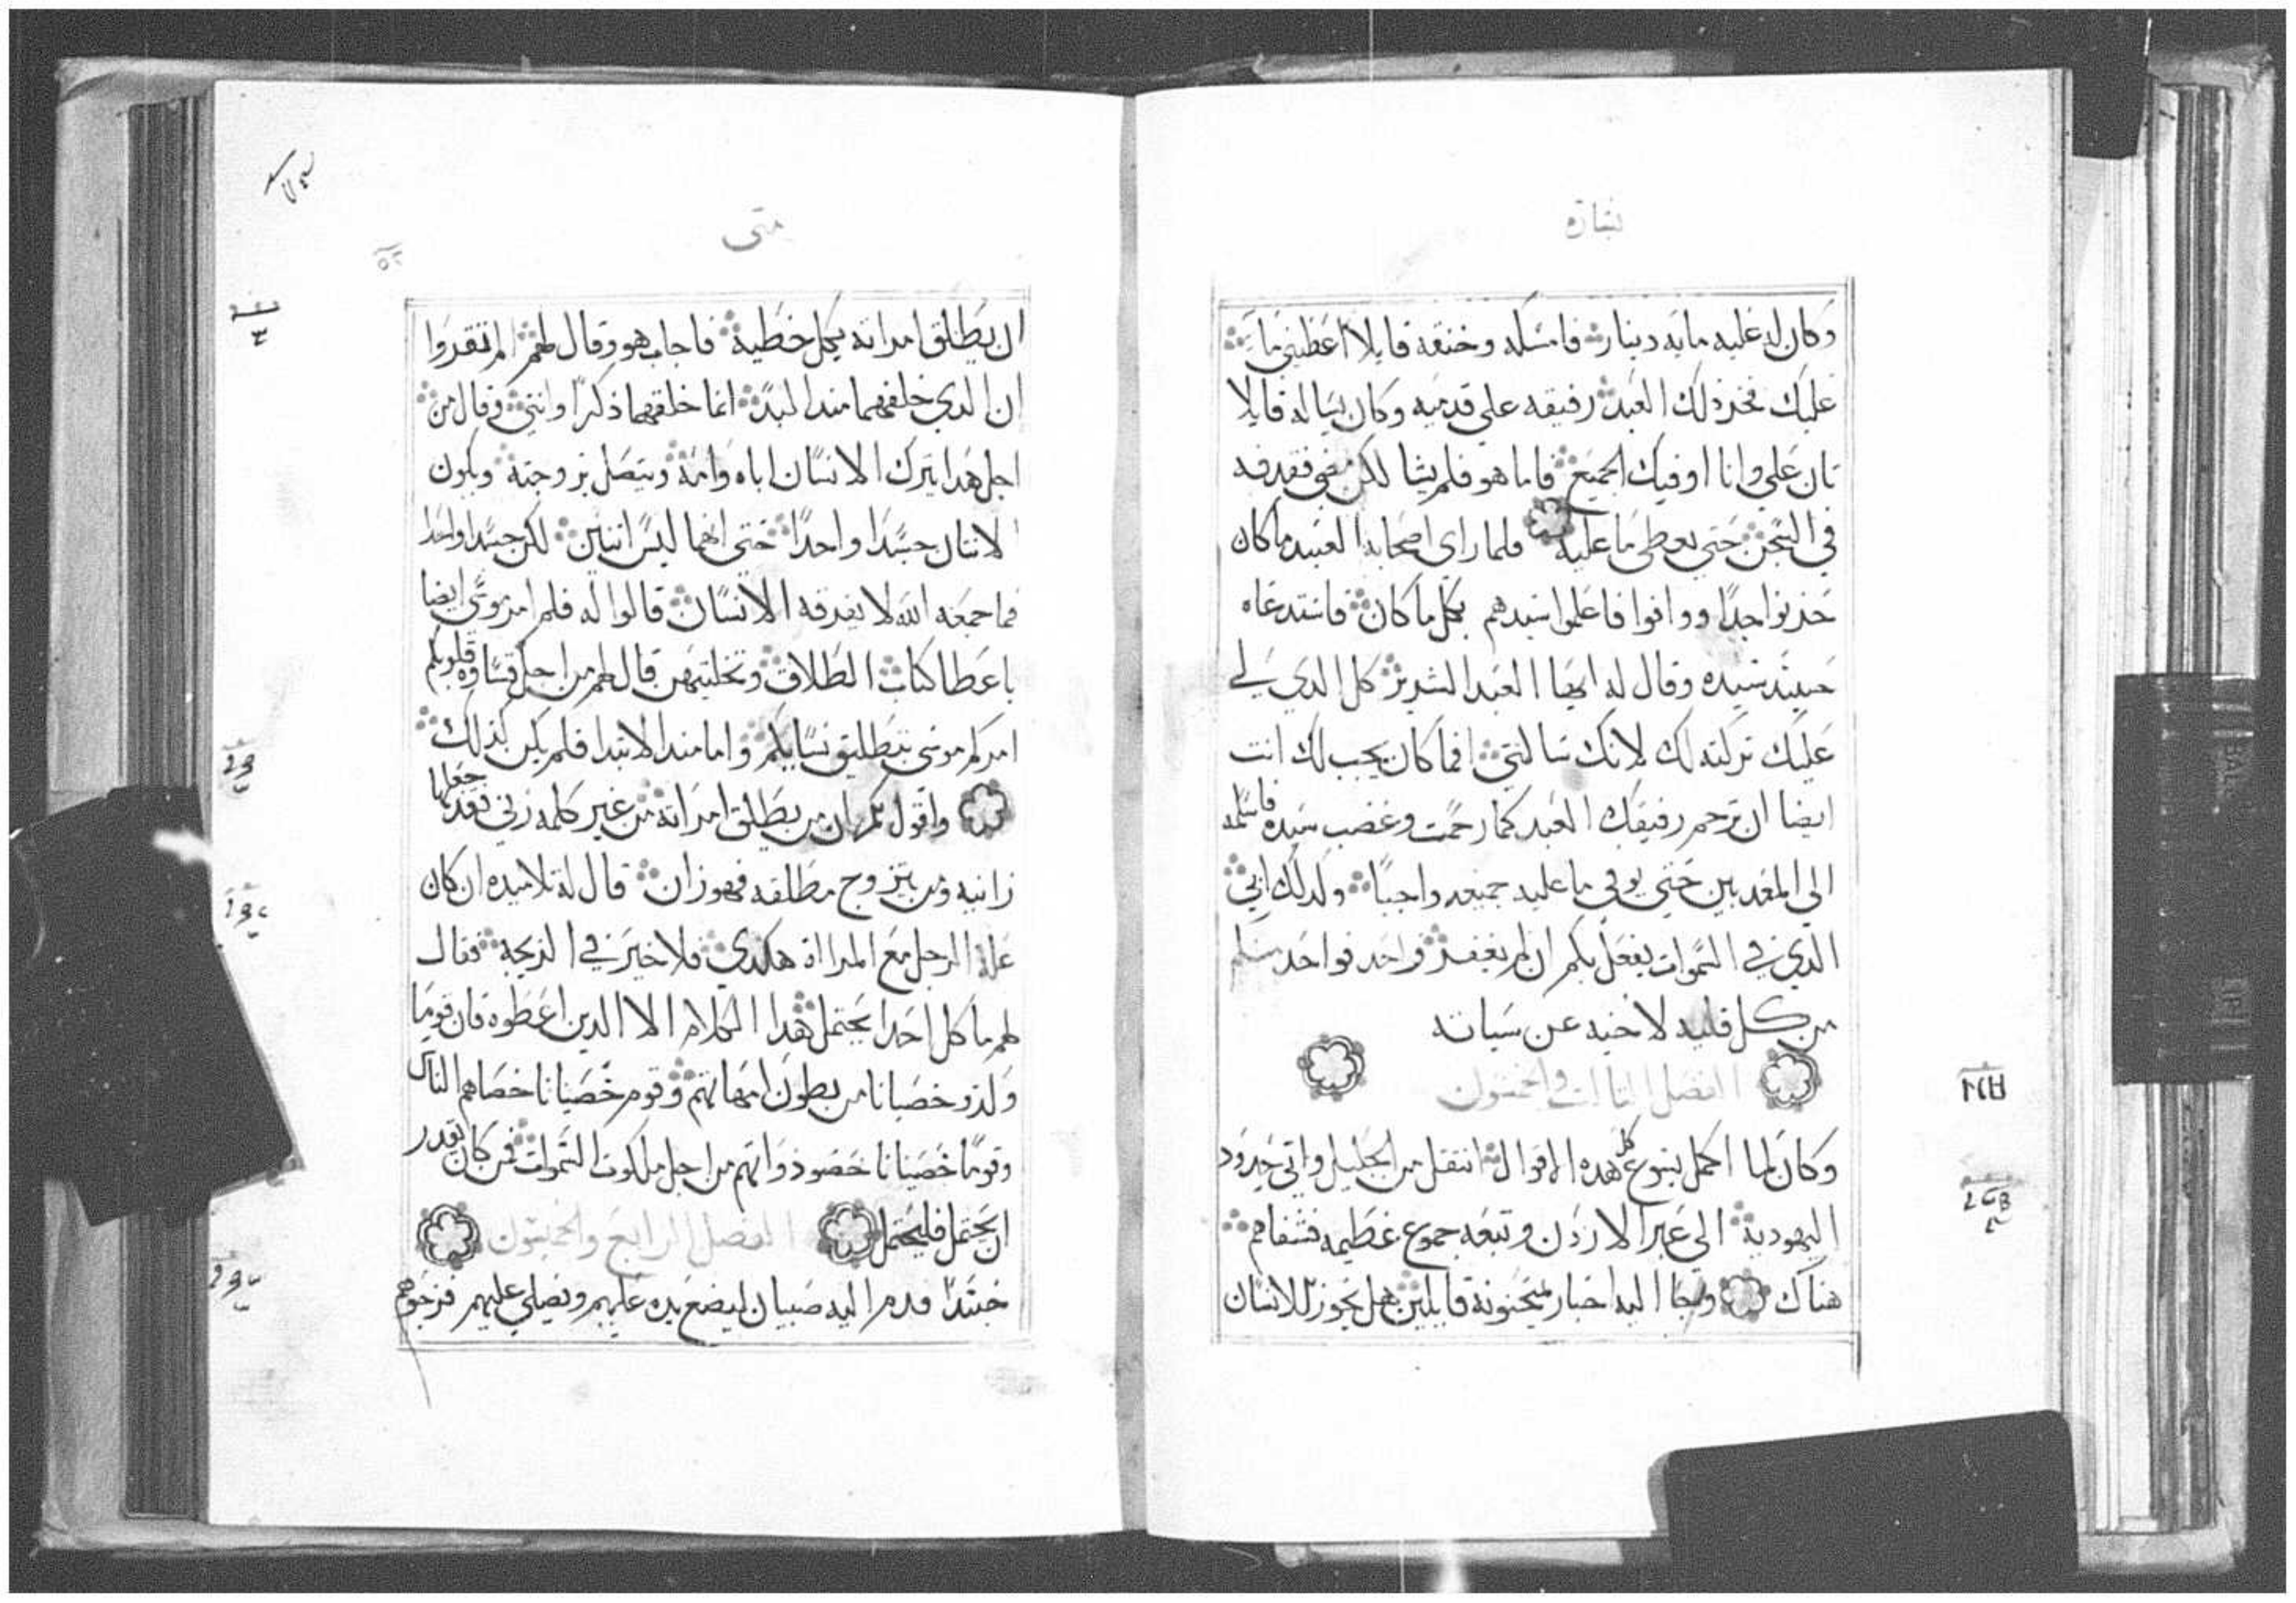 بشارة
وكان له عليه مايه دينار فامسكه وخنقه قايلا اعطيني ما
عليك فخر ذلك العبد رفيقه على قدميه وكان يساله قايلا
تان علي وانا اوفيك الجميع فاما هو فلم يشا لكن مضي فقدفه
في السجن حتي يعطي ما عليه فلما راي اصحابه العبيد ما كان
حزنوا جدا ووافوا فاعلموا سيدهم بكل ما كان فاستدعاه
حينيد سيده وقال له ايها العبد الشرير كل الدي لي
عليك تركته لك لانك سالتني افما كان يجب لك انت
ايضا ان ترحم رفيقك العبد كما رحمت وغضب سيده فاسلمه
الي المعدبين حتي يوفي ما عليه جميعه واجبا ولدلك ابي
الدي في السموات يفعل بكم ان لم يغفر واحد فواحد منكم
من كل قلبه لاخيه عن سياته
الفصل التالت والخمسون
وكان لما اكمل يسوع كل هده الاقوال انتقل من الجليل واتي حدود
اليهودية الي عبر الاردن وتبعه جموع عظيمه فشفاهم
هناك وجا اليه احبار يمتحنونه قايلين هل يجوز للانسان
متى
ان يطلق امراته بكل خطية فاجاب هو وقال لهم الم تقروا
ان الدي خلقهما مند البد انما خلقهما ذكرا وانتي وقال من
اجل هدا يترك الانسان اباه وامه ويتصل بزوجته ويكون
الاتنان جسدا واحدا حتى انهما ليسا اتنين لكن جسدا واحدا
فما جمعه الله لا يفرقه الانسان قالوا له فلم امر موسى ايضا
باعطا كتاب الطلاق وتخليتهن قال لهم من اجل قساوة قلوبكم
امركم موسى بتطليق نسايكم واما مند الابتدا فلم يكن كدلك
واقول لكم ان من يطلق امراته من غير كلمه زني فقد جعلها
زانيه ومن يتزوج مطلقه فهو زان قال له تلاميده ان كان
علة الرجل مع المرااة هكدي فلا خير في الزيجه فقال
لهم ما كل احدا يحتمل هدا الكلام الا الدين اعطوه فان قوما
ولدو خصيانا من بطون امهاتهم وقوم خصيانا خصاهم الناس
وقوما خصيانا خصوا ذواتهم من اجل ملكوت السموات فمن كان يقدر
ان يحتمل فليحتمل الفصل الرابع والخمسون
حينيدا قدم اليه صبيان ليضع يده عليهم ويصلي عليهم فزجروهم